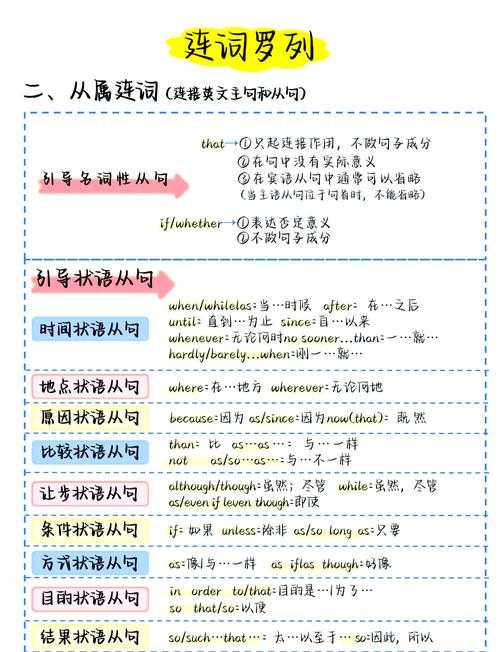 连词罗列
二、从属连词(连接英文主句和从句)
引导名词性从句
that→①只起连接作用,不做句子成分
②在句中没有实际意义
③在宾语从句中通常可以省略
(当主语从句位于句首时,不能省略)
if/whether→①表达否定意义
②不做句子成分
引导状语从句
时间状语从句
when/whilelas:当…时候 after: 在…之后
until: 直到…为止 since:自…以来
whenever:无论何时no sooner...than:一…就…
hardly/barely...when:刚一…就…
地点状语从句
where:在…地方 wherever:无论何地
原因状语从句
because:因为 as/since:因为now(that): 既然
比较状语从句
than: 比 as…as…: 与…一样
not as/so…as…:与…不一样
让步状语从句
although/though:虽然; 尽管 while:虽然, 尽管
as/even if leven though:即使
条件状语从句
if: 如果 unless:除非 as/so long as:只要
方式状语从句
as:像|与…一样 as iflas though:好像
目的状语从句
in order to/that:目的是…|为了…
so that/so:以便
结果状语从句
so/such…that…: 太…以至于…so:因此, 所以